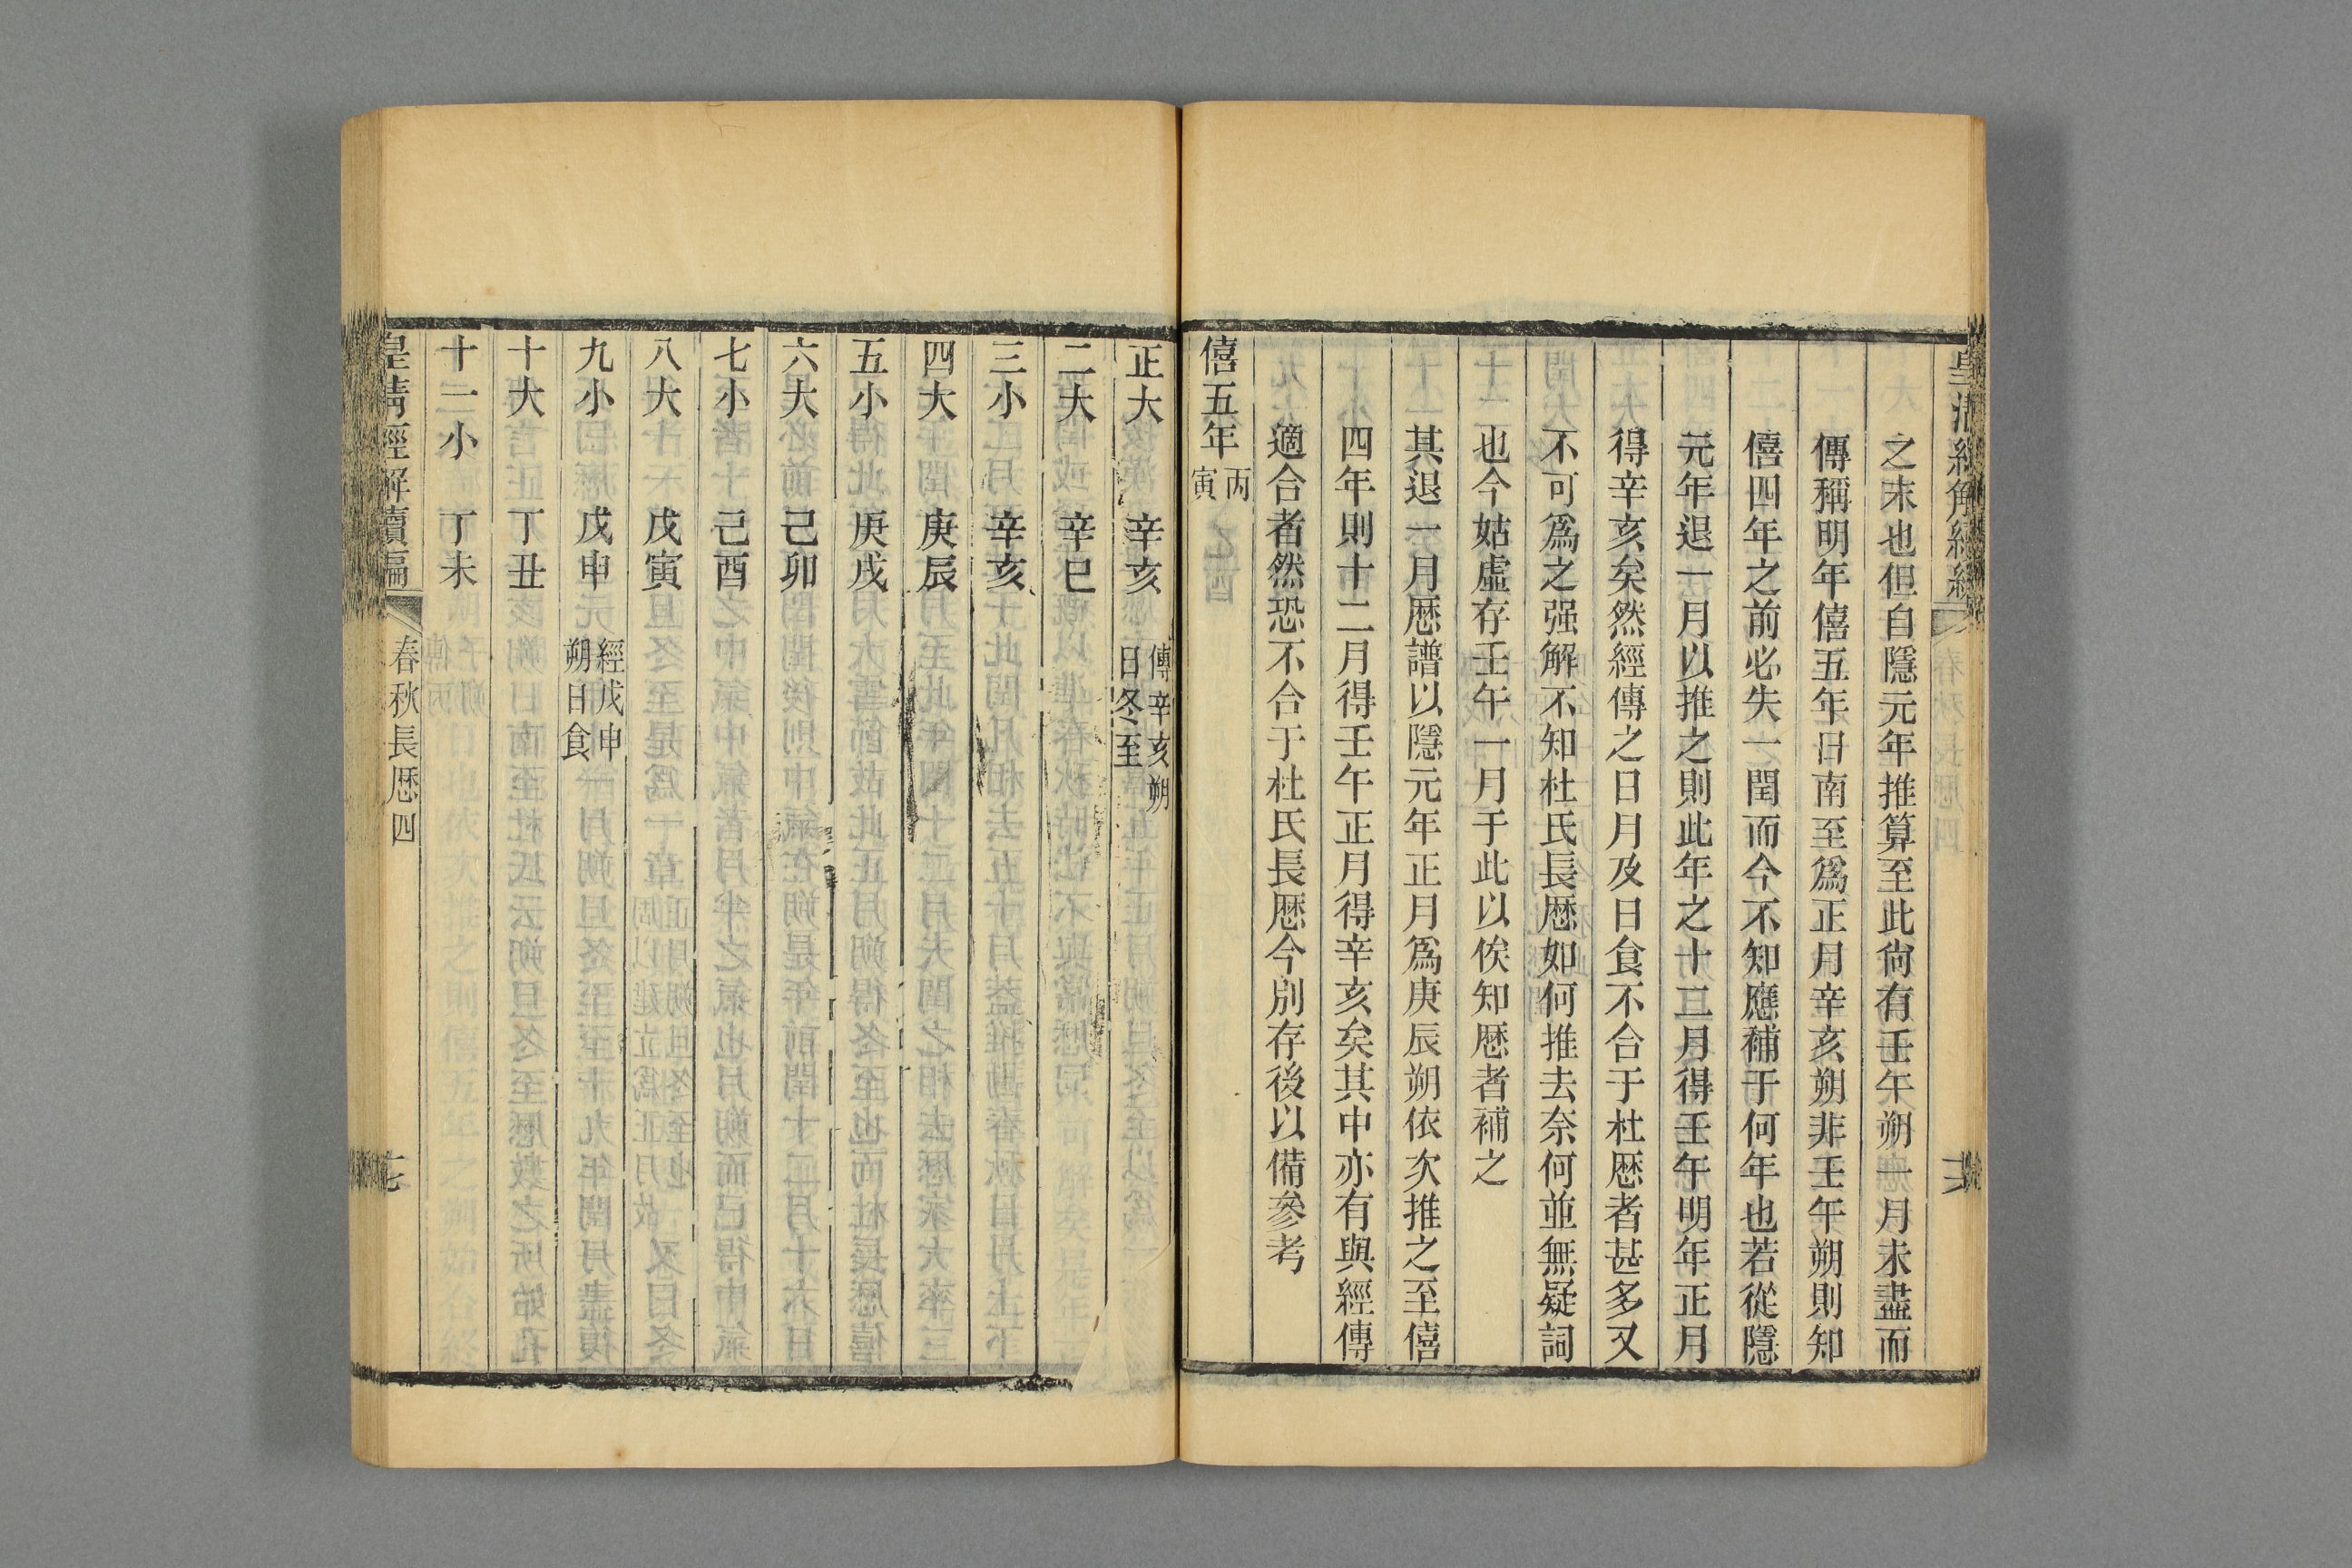 之末也但自隱元年推算至此尙有壬午朔一月未盡而
傳稱明年僖五年日南至爲正月辛亥朔非壬午朔則知
僖四年之前必失一閏而今不知應補于何年也若從隱
元年退一月以推之則此年之十二月得壬午明年正月
得辛亥矣然經傳之日月及日食不合于杜厯者甚多又
不可爲之强解不知杜氏長厯如何推去奈何並無疑詞
也今姑虛存壬午一月于此以俟知厯者補之
其退一月厯譜以隱元年正月爲庚辰朔依次推之至僖
四年則十二月得壬午正月得辛亥矣其中亦有與經傳
適合者然恐不合于杜氏長厯今別存後以備參考
僖五年丙寅
正大 辛亥 傳辛亥朔日冬至
二大 辛巳
三小 辛亥
四大 庚辰
五小 庚戌
六大 己卯
七小 己酉
八大 戊寅
九小 戊申 經戊申朔日食
十大 丁丑
十一小 丁未
皇清經解續編 春秋長厯四